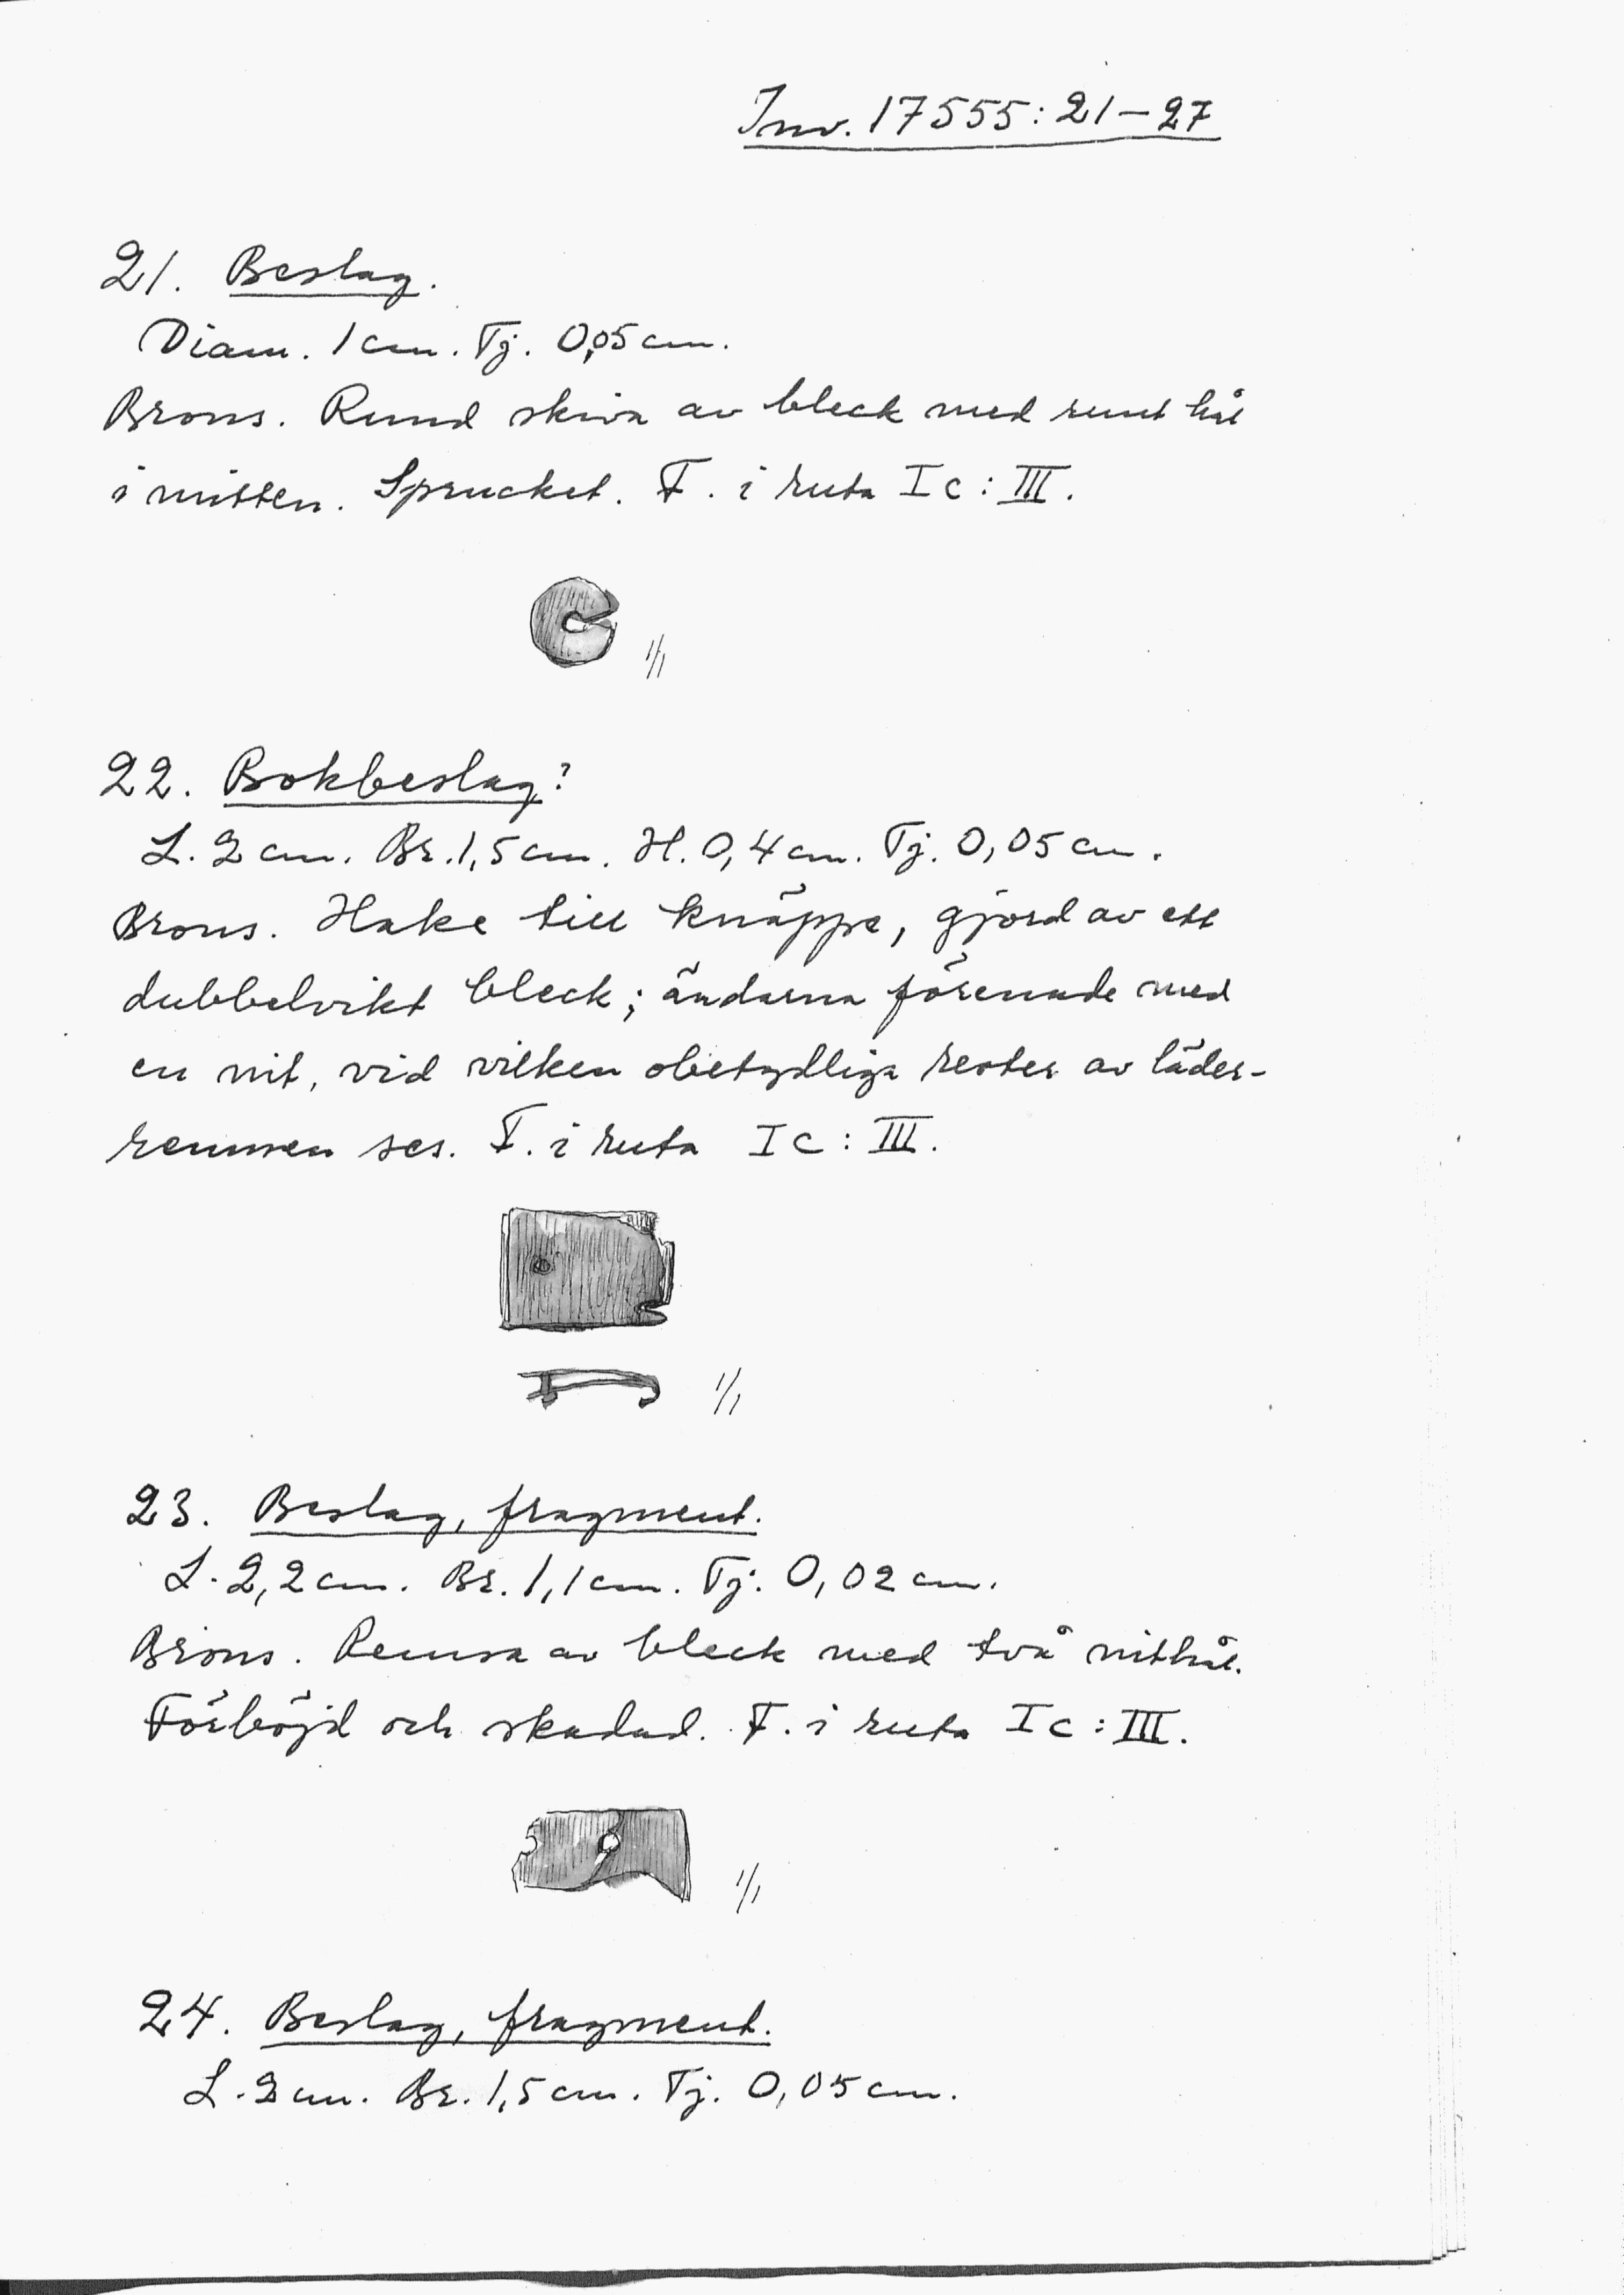 Inv. 17555:21–27
21. Beslag.
Diam. 1 cm. Tj. 0,05 cm.
Brons. Rund skiva av bleck med runt hål
i mitten. Sprucket. F. i ruta Ic: III.
1/1
22. Bokbeslag?
L. 2 cm. Br. 1,5 cm. H. 0,4 cm. Tj. 0,05 cm.
Brons. Hake till knäppe, gjord av ett
dubbelvikt bleck; ändarna förenade med
en nit, vid vilken obetydliga rester av läder-
remmen ses. F. i ruta Ic: III.
1/1
23. Beslag, fragment.
L. 2,2 cm. Br. 1,1 cm. Tj. 0,02 cm.
Brons. Remsa av bleck med två nithål.
Förböjd och skadad. F. i ruta Ic: III.
1/1
24. Beslag, fragment.
L. 2 cm. Br. 1,5 cm. Tj. 0,05 cm.